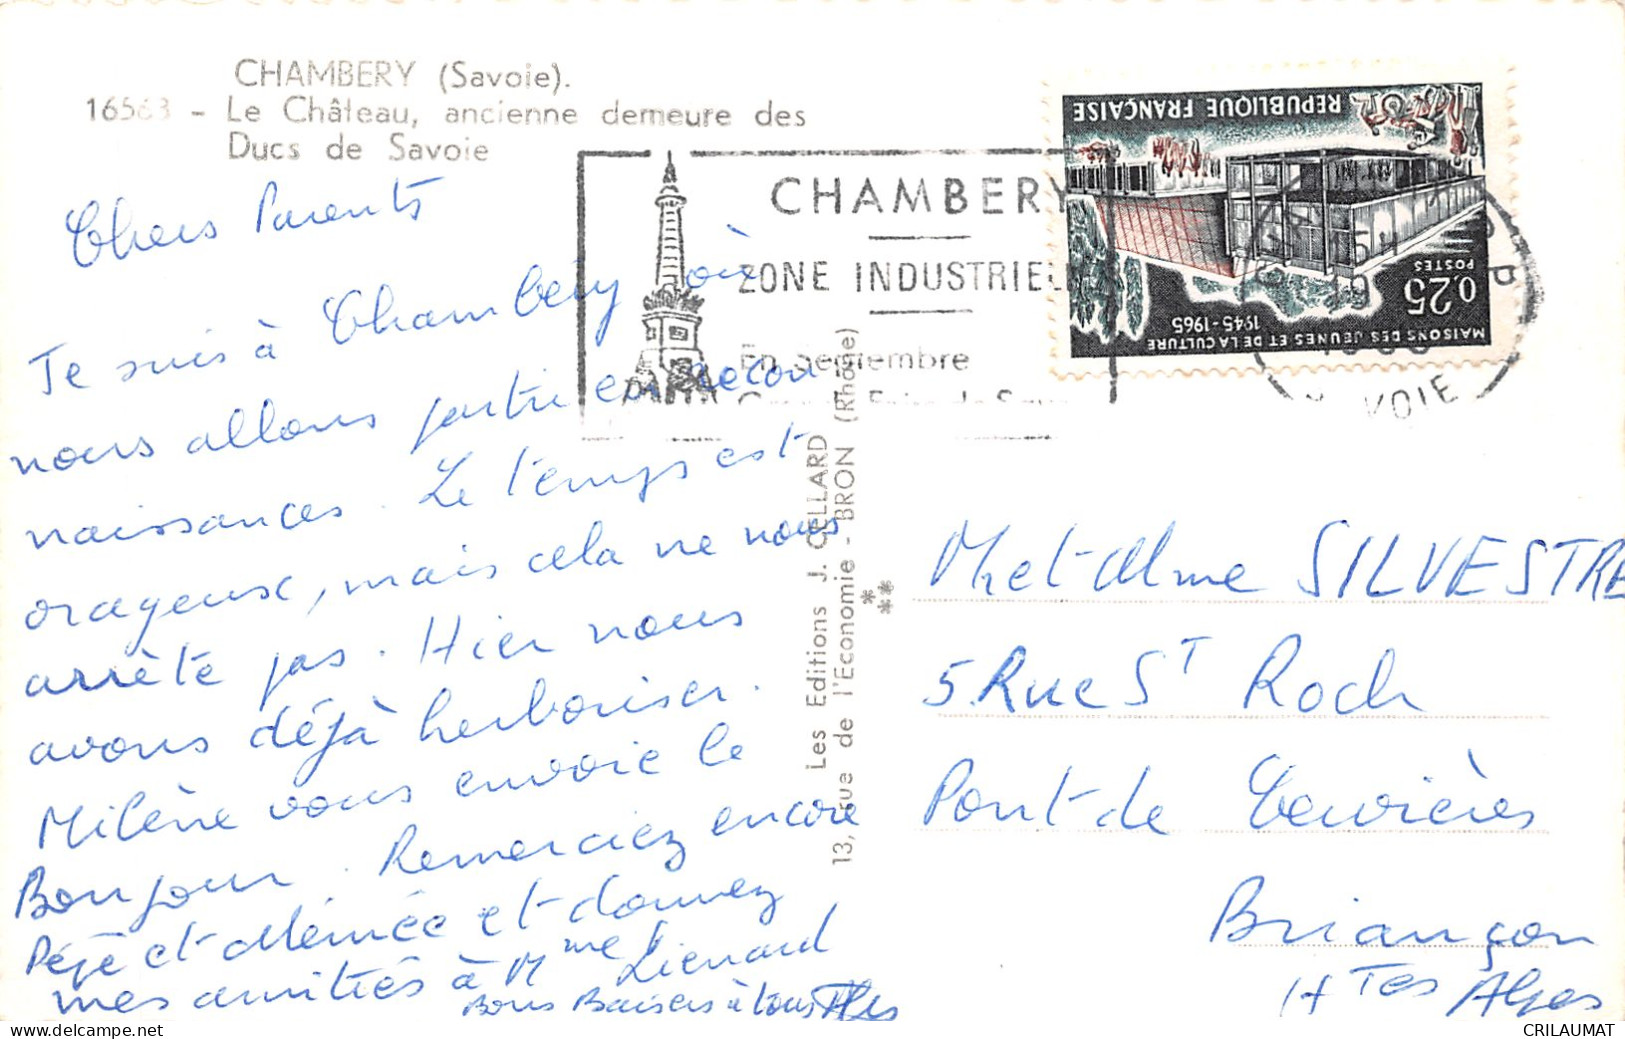 CHAMBERY (Savoie).
16563 - Le Château, ancienne demeure des
Ducs de Savoie
Chers Parents
Je suis à Chambéry où
nous allons partir en recon
naissances. Le temps est
orageux, mais cela ne nous
arrête pas. Hier nous
avons déjà herboriser.
Milène vous envoie le
Bonjour. Remerciez encore
Pépé et Mémée et donnez
mes amitiés à Mme Lienard
Bons Baisers à tous
CHAMBERY
ZONE INDUSTRIEL
En Septembre
Les Editions J. CELLARD
13, rue de l'Economie - BRON (Rhône)
REPUBLIQUE FRANÇAISE
0,25
POSTES
MAISONS DES JEUNES ET DE LA CULTURE
1945-1965
VOIE
M et Mme SILVESTRE
5 Rue St Roch
Pont de Cervières
Briançon
Htes Alpes
CRILAUMAT